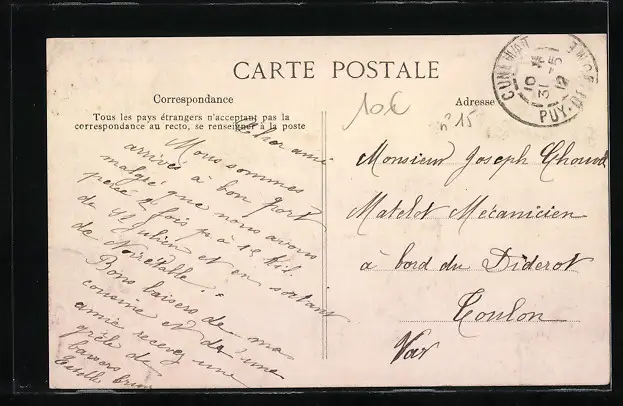 CARTE POSTALE
Correspondance
Tous les pays étrangers n'acceptant pas la
correspondance au recto, se renseigner à la poste
Cher ami
Nous sommes
arrivés à bon port
malgré que nous avons
percé 2 fois
de St Julien et en sortant
de Noirétable.
Bons baisers de ma
cousine et d'une
amie recevez une
grêle de
baisers
Adresse
10€
n° 15
Monsieur Joseph
Matelot Mécanicien
à bord du Diderot
Toulon
Var
CUNLHAT
10
31-5
12
PUY-DE-DOME